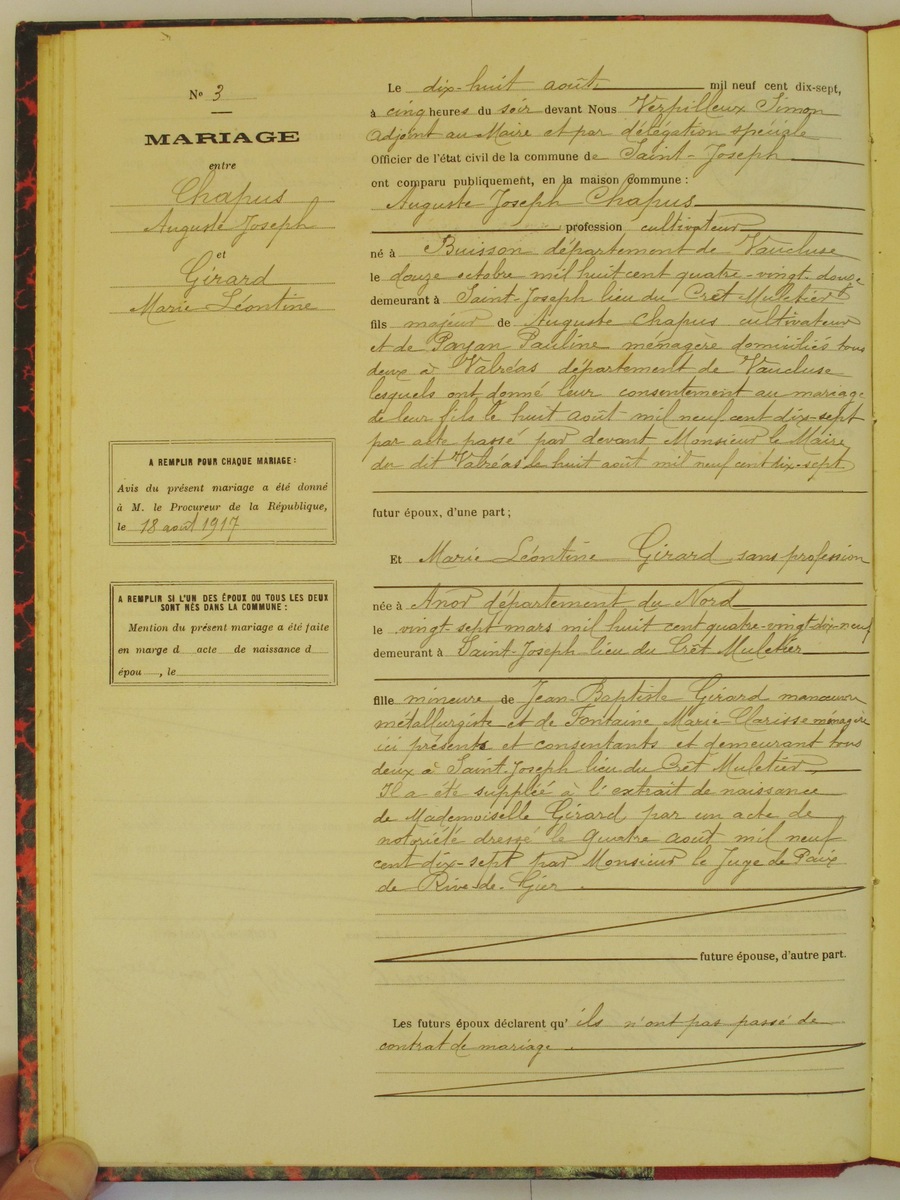 Nº 3
MARIAGE
entre
Chapus
Auguste Joseph
et
Girard
Marie Léontine
A REMPLIR POUR CHAQUE MARIAGE :
Avis du présent mariage a été donné
à M. le Procureur de la République,
le 18 août 1917
A REMPLIR SI L'UN DES ÉPOUX OU TOUS LES DEUX
SONT NÉS DANS LA COMMUNE :
Mention du présent mariage a été faite
en marge d acte de naissance d
épou , le
Le dix-huit août mil neuf cent dix-sept,
à cinq heures du soir devant Nous Verpilleux Simon
Adjoint au Maire et par délégation spéciale
Officier de l'état civil de la commune de Saint-Joseph
ont comparu publiquement, en la maison commune :
Auguste Joseph Chapus
profession cultivateur
né à Buisson département de Vaucluse
le douze octobre mil huit cent quatre-vingt-douze
demeurant à Saint-Joseph lieu du Crêt Muletier
fils majeur de Auguste Chapus cultivateur
et de Payan Pauline ménagère domiciliés tous
deux à Valréas département de Vaucluse
lesquels ont donné leur consentement au mariage
de leur fils le huit août mil neuf cent dix-sept
par acte passé par devant Monsieur le Maire
du dit Valréas le huit août mil neuf cent dix-sept
futur époux, d'une part ;
Et Marie Léontine Girard sans profession
née à Anor département du Nord
le vingt-sept mars mil huit cent quatre-vingt-dix-neuf
demeurant à Saint-Joseph lieu du Crêt Muletier
fille mineure de Jean-Baptiste Girard manœuvre
métallurgiste et de Fontaine Marie Clarisse ménagère
ici présents et consentants et demeurant tous
deux à Saint-Joseph lieu du Crêt Muletier,
Il a été suppléé à l'extrait de naissance
de Mademoiselle Girard, par un acte de
notoriété dressé le quatre août mil neuf
cent dix-sept par Monsieur le Juge de Paix
de Rive-de-Gier
future épouse, d'autre part.
Les futurs époux déclarent qu'ils n'ont pas passé de
contrat de mariage.